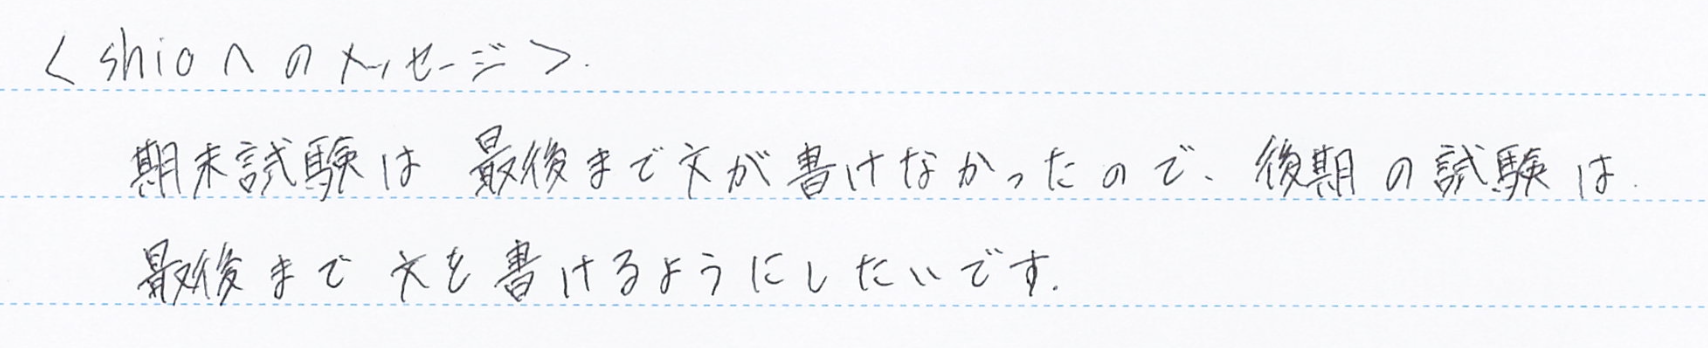 <shioへのメッセージ>.
期末試験は最後まで文が書けなかったので、後期の試験は
最後まで文を書けるようにしたいです.